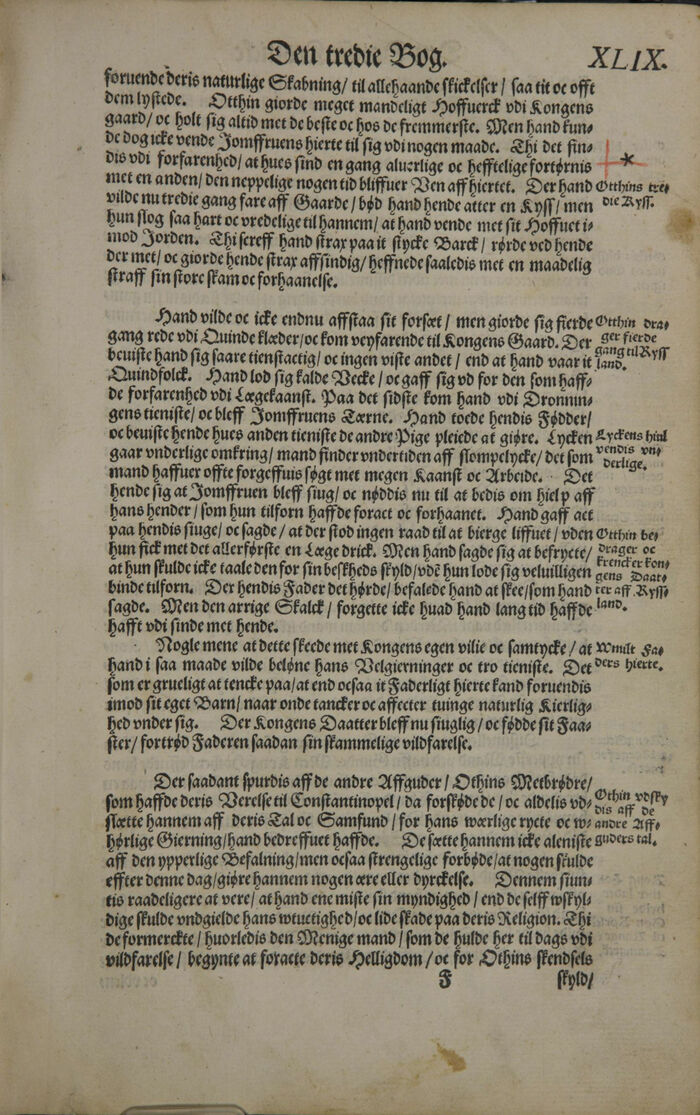 Den tredie Bog. XLIX.
foruende deris naturlige Skabning/ til allehaande skickelser/ saa tit oc offt
dem lystede. Otthin giorde meget mandeligt Hoffuerck vdi Kongens
gaard/ oc holt sig altid met de beste oc hos de fremmerste. Men hand kun-
de dog icke vende Jomffruens hierte til sig vdi nogen maade. Thi det fin-
dis vdi forfarenhed/ at hues sind en gang aluerlige oc hefftelige fortørnis
met en anden/ den neppelige nogen tid bliffuer Ven aff hiertet. Der hand
vilde nu tredie gang fare aff Gaarde/ bød hand hende atter en Kyss/ men
hun slog saa hart oc vredelige til hannem/ at hand vende met sit Hoffuet i-
mod Jorden. Thi screff hand strax paa it stycke Barck/ rørde ved hende
der met/ oc giorde hende strax affsindig/ heffnede saaledis met en maadelig
straff sin store skam oc forhaanelse.
*
Otthins tre-
die Kyss.
Hand vilde oc icke endnu affstaa sit forsæt/ men giorde sig fierde
gang rede vdi Quinde klæder/ oc kom veyfarende til Kongens Gaard. Der
beuiste hand sig saare tienstactig/ oc ingen viste andet/ end at hand vaar it
Quindfolck. Hand lod sig kalde Vecke/ oc gaff sig vd for den som haff-
de forfarenhed vdi Lægekaanst. Paa det sidste kom hand vdi Dronnin-
gens tieniste/ oc bleff Jomffruens Tærne. Hand toede hendis Fødder/
oc beuiste hende hues anden tieniste de andre Pige pleiede at giøre. Lycken
gaar vnderlige omkring/ mand finder vndertiden aff slompelycke/ det som
mand haffuer offte forgeffuis søgt met megen Kaanst oc Arbeide. Det
hende sig at Jomffruen bleff siug/ oc nøddis nu til at bedis om hielp aff
hans hender/ som hun tilforn haffde foract oc forhaanet. Hand gaff act
paa hendis siuge/ oc sagde/ at der stod ingen raad til at bierge liffuet/ vden
hun fick met det allerførste en Læge drick. Men hand sagde sig at befrycte/
at hun skulde icke taale den for sin beskheds skyld/ vdẽ hun lode sig veluilligen
binde tilforn. Der hendis Fader det hørde/ befalede hand at skee/ som hand
sagde. Men den arrige Skalck/ forgette icke huad hand lang tid haffde
hafft vdi sinde met hende.
Otthin dra-
ger fierde
gang til Ryss
land.
Lyckens hiul
vendis vn-
derlige.
Otthin be-
drager oc
krencker kon-
gens Daat-
ter aff Ryss-
land.
Nogle mene at dette skeede met Kongens egen vilie oc samtycke/ at
hand i saa maade vilde beløne hans Velgierninger oc tro tieniste. Det
som er grueligt at tencke paa/ at end ocsaa it Faderligt hierte kand foruendis
imod sit eget Barn/ naar onde tancker oc affecter tuinge naturlig Kierlig-
hed vnder sig. Der Kongens Daatter bleff nu siuglig/ oc fødde sit Faa-
ster/ fortrød Faderen saadan sin skammelige vildfarelse.
Wmilt Fa-
ders hierte.
Der saadant spurdis aff de andre Affguder/ Othins Metbrødre/
som haffde deris Verelse til Constantinopel/ da forskøde de/ oc aldelis vd-
slætte hannem aff deris Tal oc Samfund/ for hans wærlige rycte oc w-
hørlige Gierning/ hand bedreffuet haffde. De sætte hannem icke aleniste
aff den ypperlige Befalning/ men ocsaa strengelige forbøde/ at nogen skulde
effter denne dag/ giøre hannem nogen ære eller dyrckelse. Dennem siun-
tis raadeligere at vere/ at hand ene miste sin myndighed/ end de selff wskyl-
dige skulde vndgielde hans wtuctighed/ oc lide skade paa deris Religion. Thi
de formerckte/ huorledis den Menige mand/ som de hulde her til dags vdi
vildfarelse/ begynte at foracte deris Helligdom/ oc for Othins skendsels
Othin vdsky
dis aff de
andre Aff-
guders tal.
F skyld/